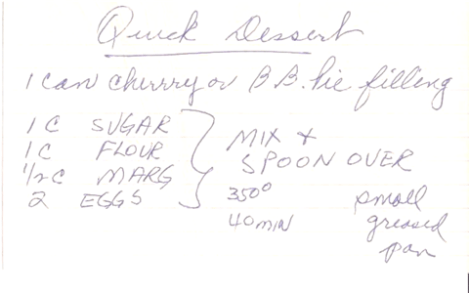 Quick Dessert
1 can cherry or B.B. Pie filling
1 C SUGAR
1 C FLOUR
1/2 C MARG
2 EGGS
MIX +
SPOON OVER
350°
40 MIN
small
greased
pan